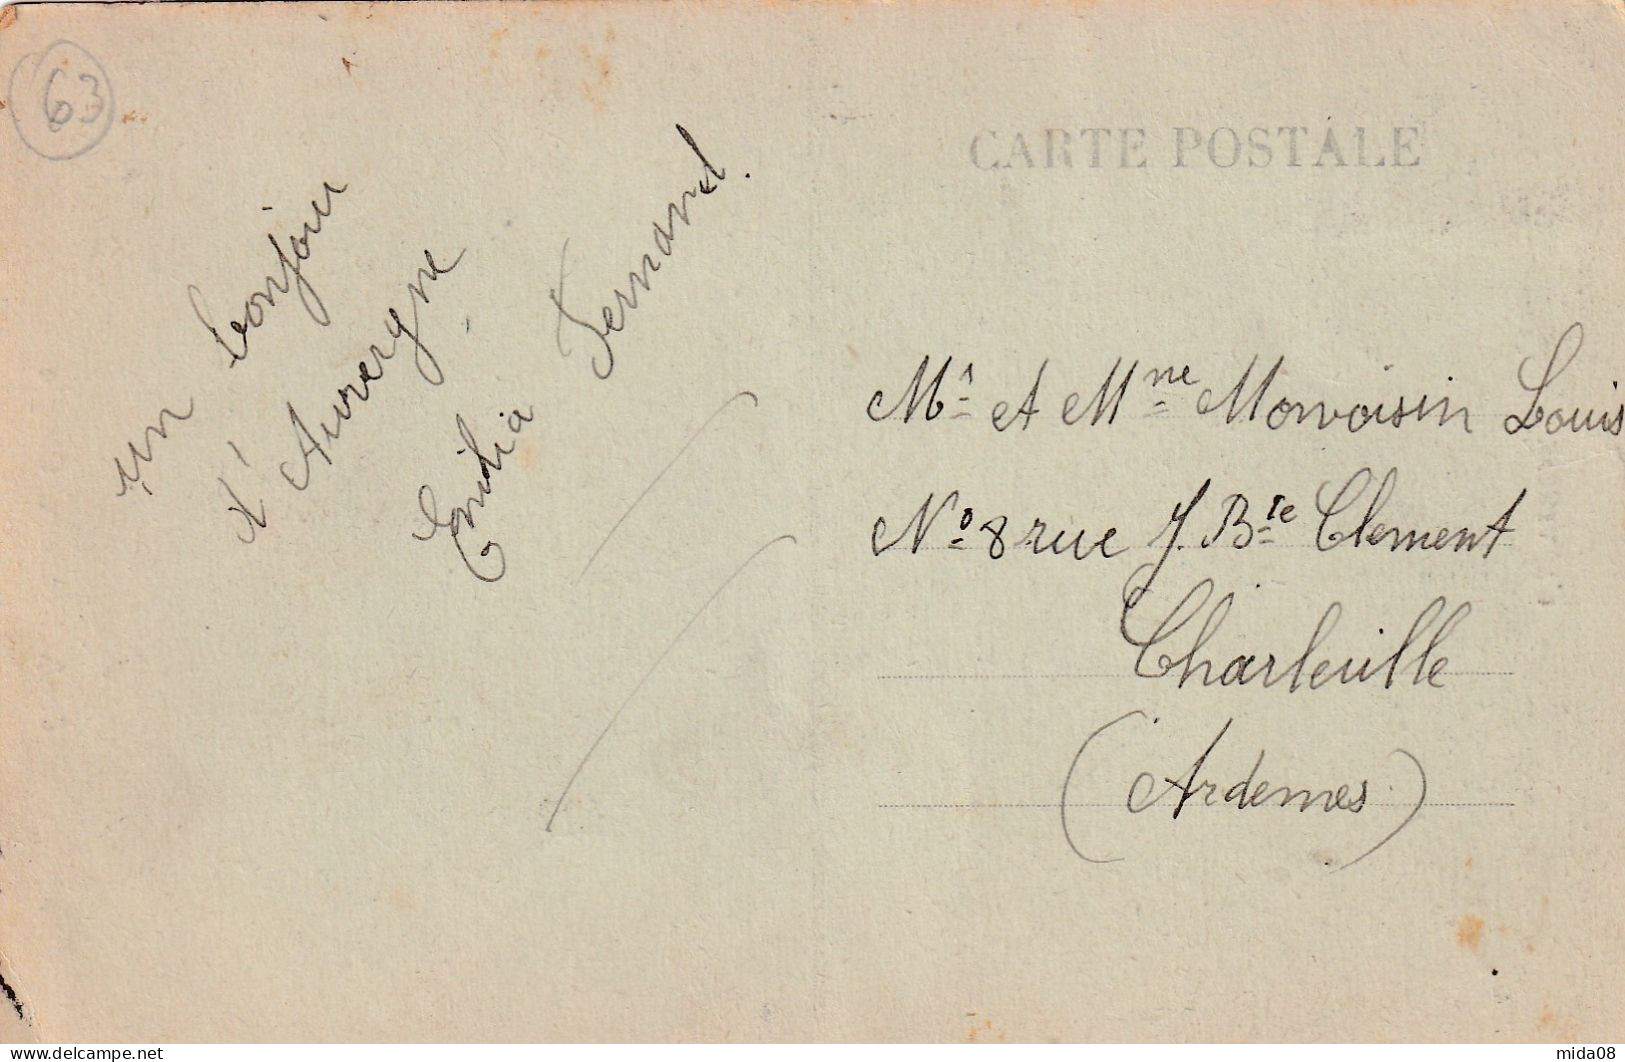 63
CARTE POSTALE
un bonjour
d'Auvergne
Emilia Fernand.
Mr et Mme Morvoisin Louis
No 8 rue J. Bte Clement
Charleville
(Ardennes)
https://www.delcampe.net
mida08